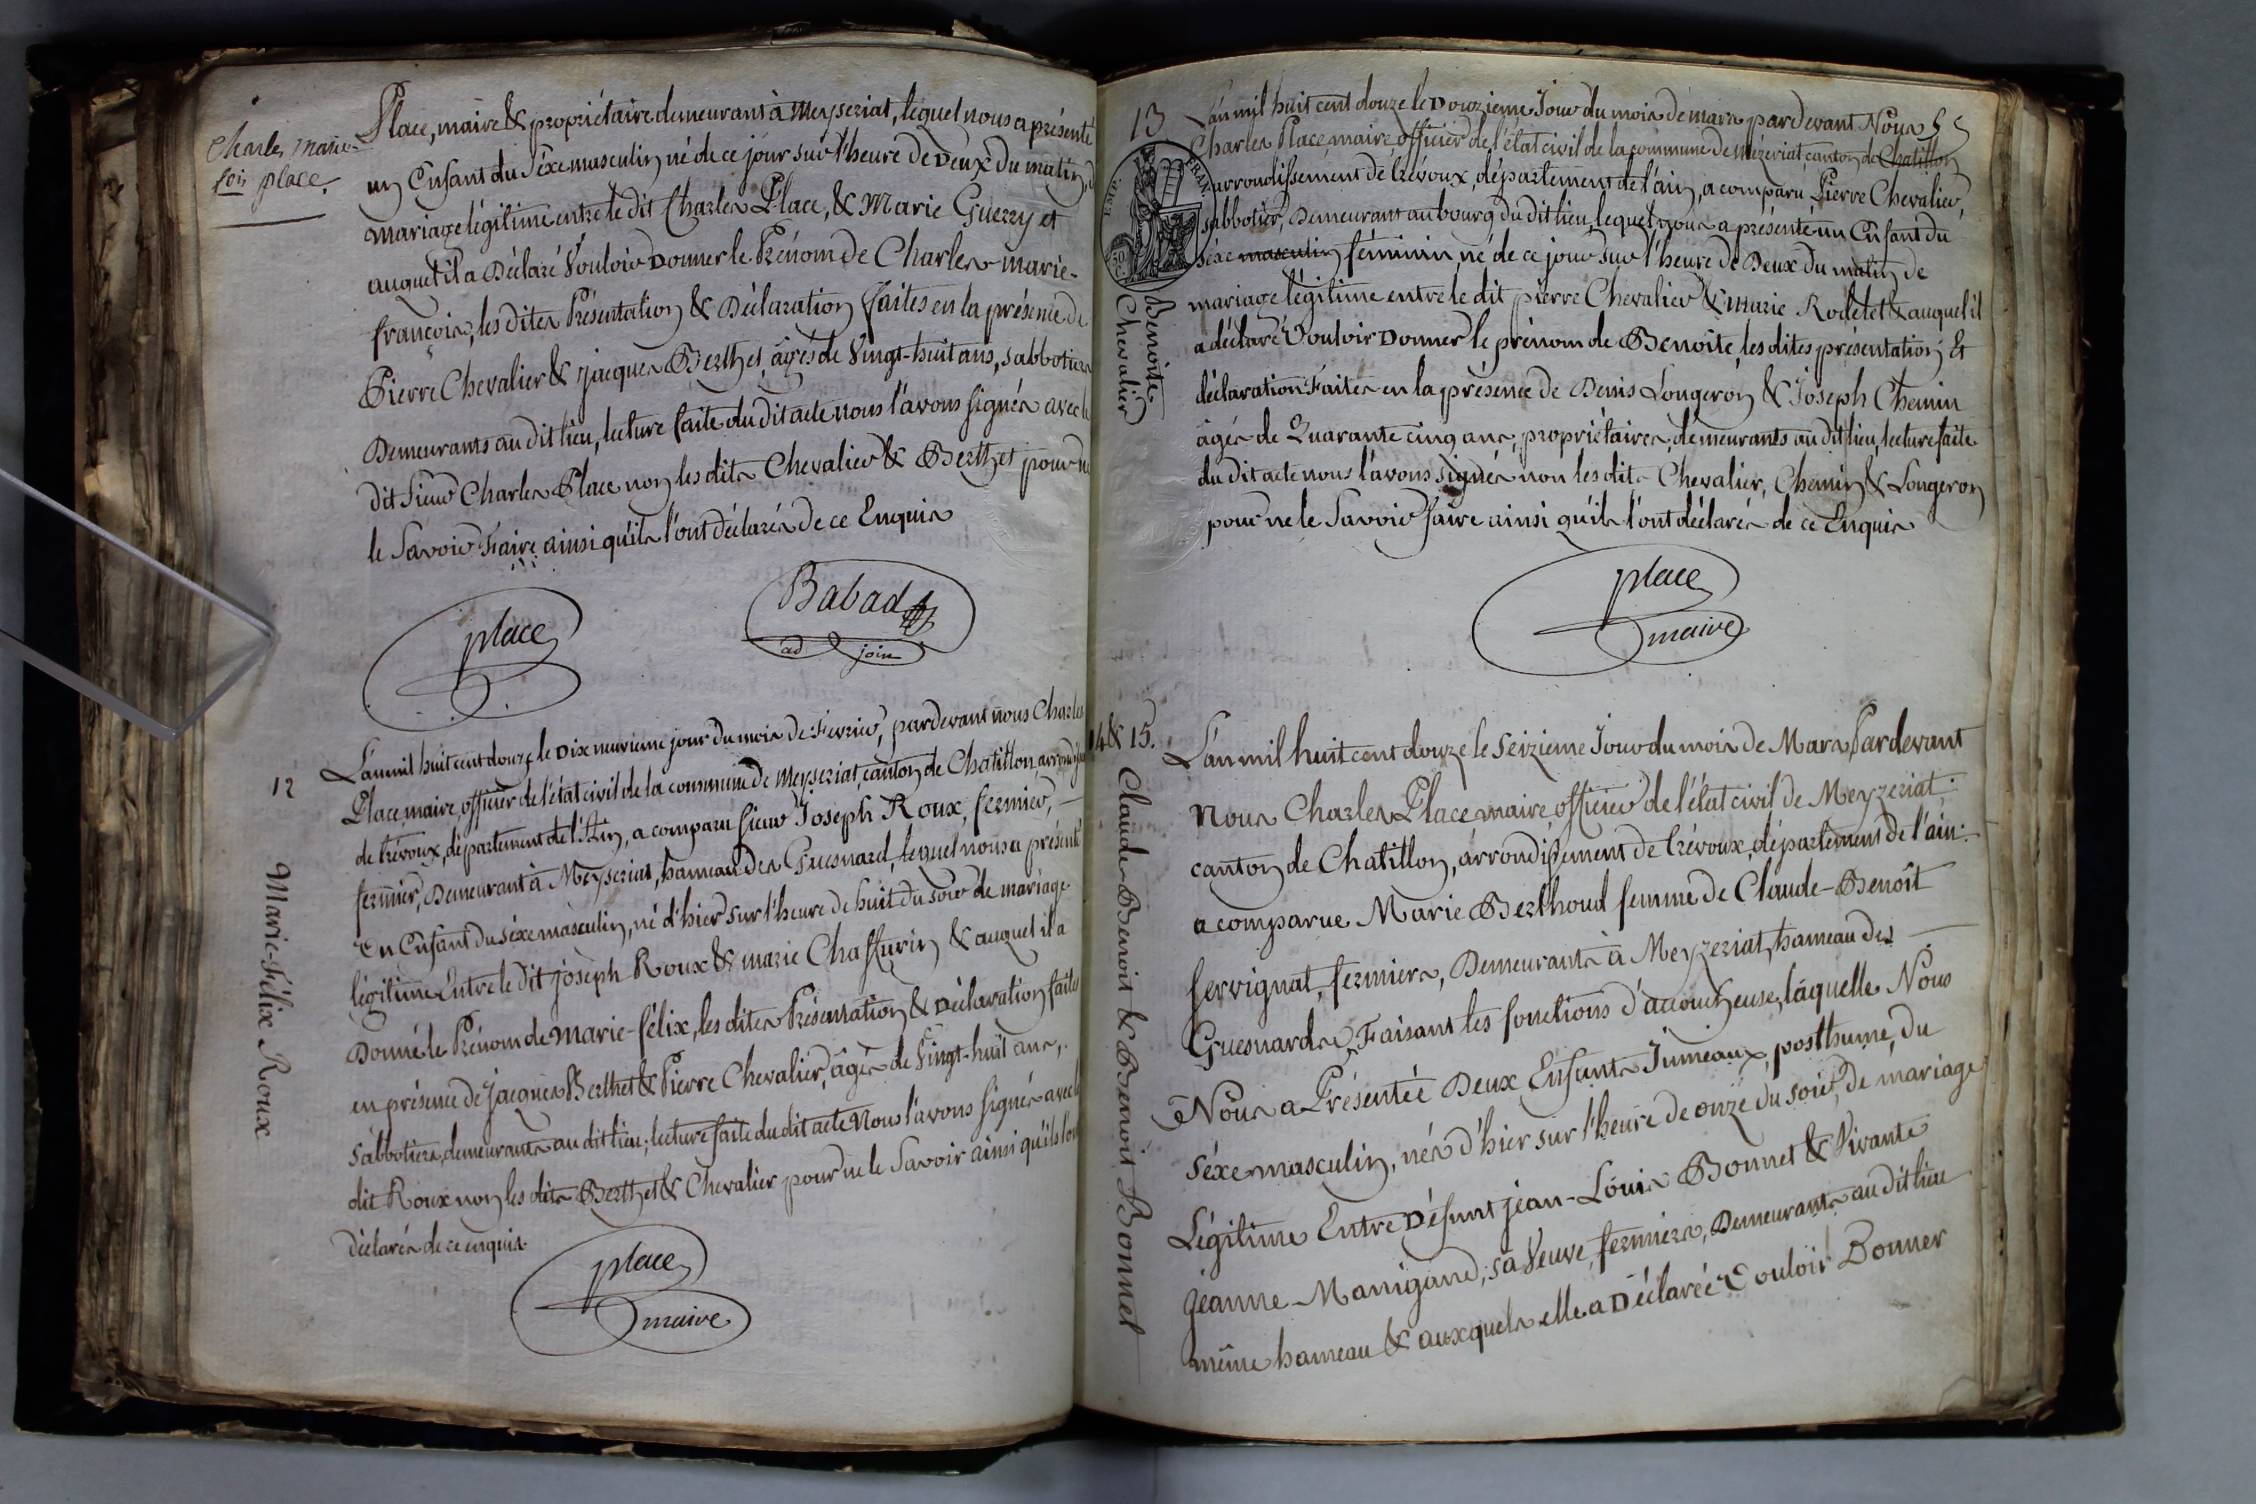 Charles marie-
çois place.
Place, maire & propriétaire demeurant à Meyseriat, lequel nous a présenté
un Enfant du Séxe masculin né de ce jour sur l'heure de Deux du matin,
mariage légitime entre le dit Charles Place, & Marie Guerry et
auquel il a Déclaré Vouloir Donner le Prénom de Charles-marie-
françois, les dites Présentation & Déclaration faites en la présence de
Pierre Chevalier & jacques Berthet, âgés de Vingt-huit ans, sabbotiers
Demeurants au dit lieu, lecture faite du dit acte nous l'avons signés avec le
dit Sieur Charles Place non les dits Chevalier & Berthet pour ne
le Savoir Faire ainsi qu'ils l'ont déclarés de ce Enquis
place
Babad
ad join
12
Marie-Félix Roux
L'an mil huit cent douze le Dix neuvieme jour du mois de Fevrier, pardevant nous Charles
Place, maire, officier de l'état civil de la commune de Meyseriat, canton de Chatillon, arrondiss
de trévoux, département de l'Ain, a comparu sieur Joseph Roux, fermier,
fermier, Demeurant à Meyseriat, hameau des Guesnard, lequel nous a présenté
Un Enfant du séxe masculin, né d'hier sur l'heure de huit du soir de mariage
légitime Entre le dit joseph Roux & marie Chaffurin & auquel il a
Donné le Prénom de Marie-félix, les dites Présentation & Déclaration faites
en présence de jacques Berthet & Pierre Chevalier, âgés de Vingt-huit ans,
sabbotiers, demeurants au dit lieu; lecture faite du dit acte Nous l'avons signés avec le
dit Roux non les dits Berthet & Chevalier pour ne le Savoir ainsi qu'ils l'ont
déclarés de ce enquis
place
maire
13
EMP. FRAN
Benoite
Chevalier
L'an mil huit cent douze le Douzieme Jour du mois de mars pardevant Nous
Charles Place, maire officier de l'état civil de la commune de Mézériat, canton de Chatillon
arrondissement de trévoux, département de l'ain, a comparu, Pierre Chevalier,
sabbotier, Demeurant au bourg du dit lieu, lequel nous a présenté un Enfant du
séxe masculin féminin, né de ce jour sur l'heure de Deux du matin de
mariage légitime entre le dit pierre Chevalier & Marie Rodetet & auquel il
a déclaré Vouloir Donner le prénom de Benoite, les dites présentation Et
déclaration Faites en la présence de Denis Longeron & Joseph Chemin
âgés de Quarante cinq ans, propriétaires, demeurants au dit lieu, lecture faite
du dit acte nous l'avons signés non les dits Chevalier, Chemin & Longeron
pour ne le Savoir faire ainsi qu'ils l'ont déclarés de ce Enquis
place
maire
14 & 15.
Claude-Benoit & Benoit Bonnet
L'an mil huit cent douze le Seizieme Jour du mois de Mars Pardevant
Nous Charles Place maire officier de l'état civil de Meyzeriat
canton de Chatillon, arrondissement de trévoux, département de l'ain.
a comparue Marie Berthoud femme de Claude-Benoît
Servignat, fermiers, Demeurants à Meyzeriat, hameau des
Guesnards, Faisant les fonctions d'accoucheuse, laquelle Nous
Nous a Présentée Deux Enfants Jumeaux, posthume, du
Séxe masculin, nés d'hier sur l'heure de onze du soir, de mariage
Légitime Entre Défunt jean-Louis Bonnet & Vivante
jeanne Manigand, sa Veuve, fermiers, Demeurants au dit lieu
même hameau & auxquels elle a Déclarée Vouloir Donner